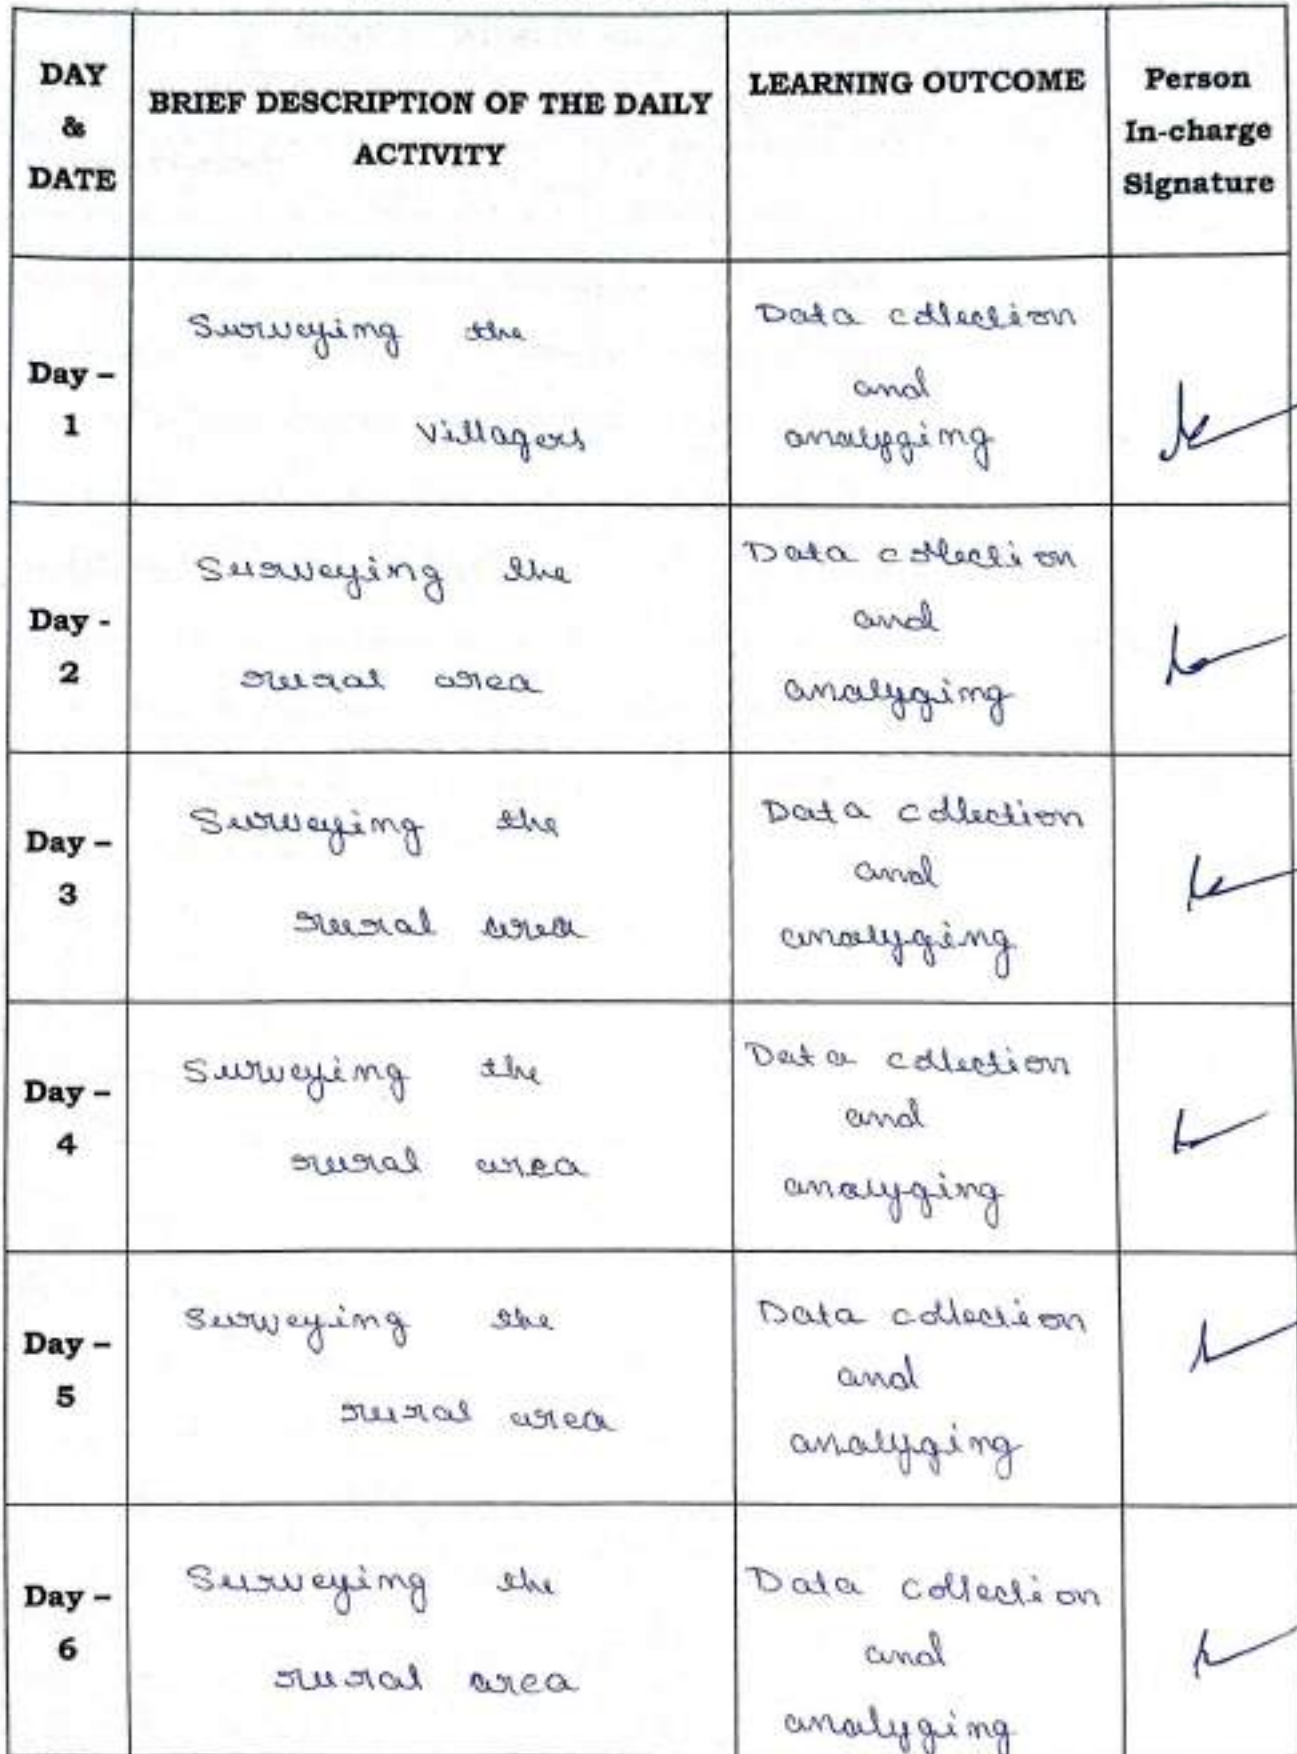 DAY
&
DATE
BRIEF DESCRIPTION OF THE DAILY
ACTIVITY
LEARNING OUTCOME
Person
In-charge
Signature
Day –
1
Surveying the
Villagers
Data collection
and
analyzing
Day -
2
Surveying the
rural area
Data collection
and
analyzing
Day –
3
Surveying the
rural area
Data collection
and
analyzing
Day –
4
Surveying the
rural area
Data collection
and
analyzing
Day –
5
Surveying the
rural area
Data collection
and
analyzing
Day –
6
Surveying the
rural area
Data collection
and
analyzing